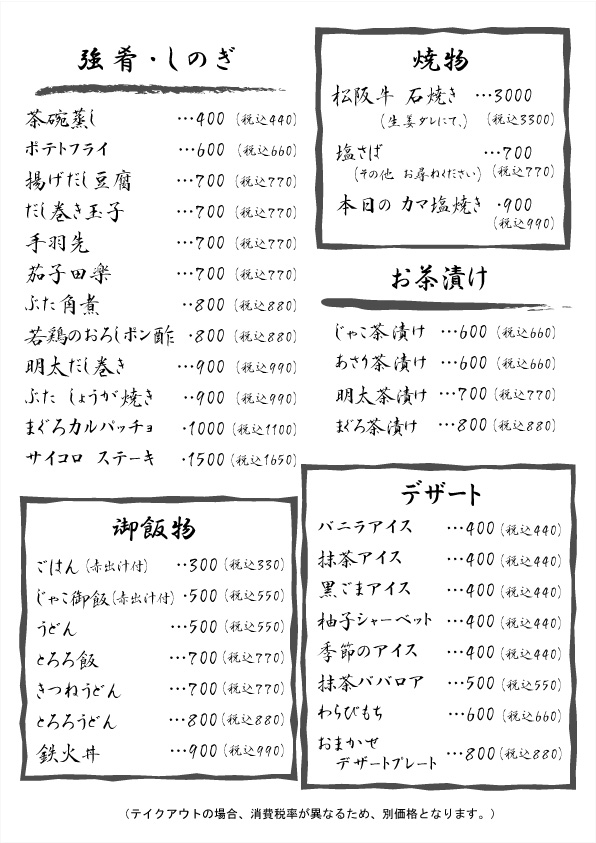 強肴・しのぎ
茶碗蒸し …400 (税込440)
ポテトフライ …600 (税込660)
揚げだし豆腐 …700 (税込770)
だし巻き玉子 …700 (税込770)
手羽先 …700 (税込770)
茄子田楽 …700 (税込770)
ぶた角煮 ‥800 (税込880)
若鶏のおろしポン酢 ·800 (税込880)
明太だし巻き …900 (税込990)
ぶた しょうが焼き ‥900 (税込990)
まぐろカルパッチョ ·1000 (税込1100)
サイコロ ステーキ ·1500 (税込1650)
御飯物
ごはん(赤出汁付) ‥300 (税込330)
じゃこ御飯(赤出汁付) ·500 (税込550)
うどん …500 (税込550)
とろろ飯 …700 (税込770)
きつねうどん …700 (税込770)
とろろうどん …800 (税込880)
鉄火丼 …900 (税込990)
焼物
松阪牛 石焼き …3000
(生姜ダレにて、) (税込3300)
塩さば …700
(その他 お尋ねください) (税込770)
本日の カマ塩焼き ·900
(税込990)
お茶漬け
じゃこ茶漬け …600 (税込660)
あさり茶漬け …600 (税込660)
明太茶漬け …700 (税込770)
まぐろ茶漬け …800 (税込880)
デザート
バニラアイス …400 (税込440)
抹茶アイス …400 (税込440)
黒ごまアイス …400 (税込440)
柚子シャーベット …400 (税込440)
季節のアイス …400 (税込440)
抹茶ババロア …500 (税込550)
わらびもち …600 (税込660)
おまかせ
デザートプレート …800 (税込880)
(テイクアウトの場合、消費税率が異なるため、別価格となります。)